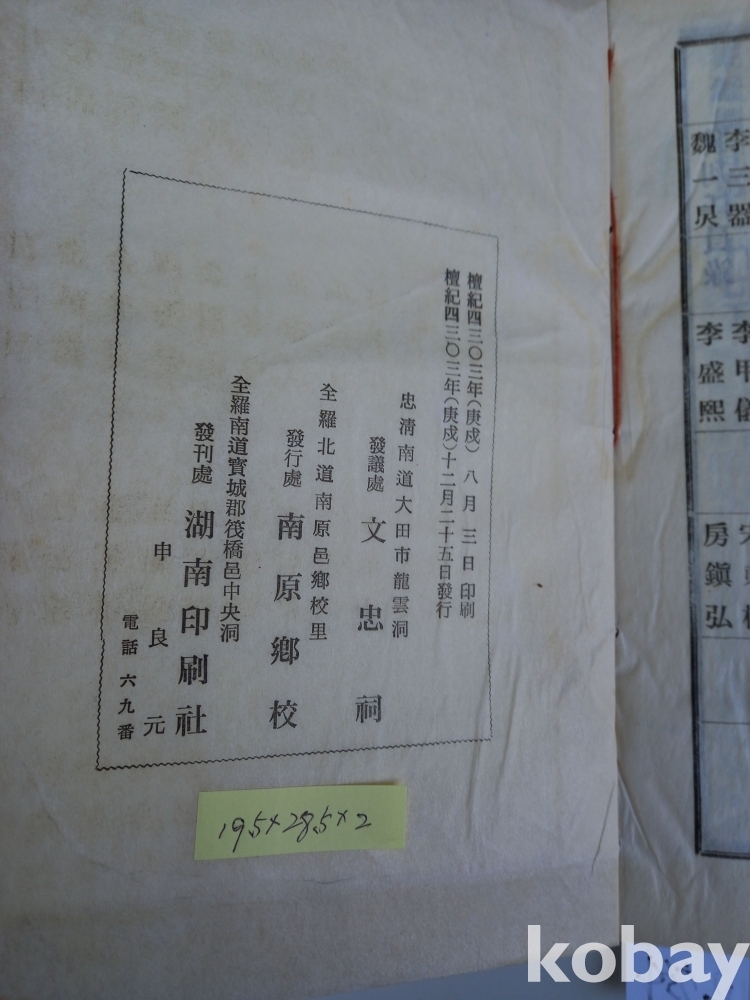 檀紀四三〇三年(庚戌) 八月三日印刷
檀紀四三〇三年(庚戌)十二月二十五日發行
忠淸南道大田市龍雲洞
發議處 文忠祠
全羅北道南原邑鄕校里
發行處 南原鄕校
全羅南道寶城郡筏橋邑中央洞
發刊處 湖南印刷社
申良元
電話 六九番
19.5×28.5×2
李三器
魏一炅
李盛熙
房鎭弘
kobay